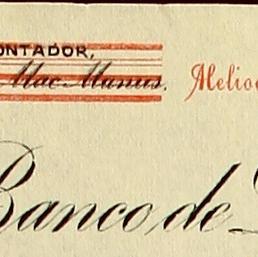 ONTADOR,
Mac-Manus. Melio
Banco de